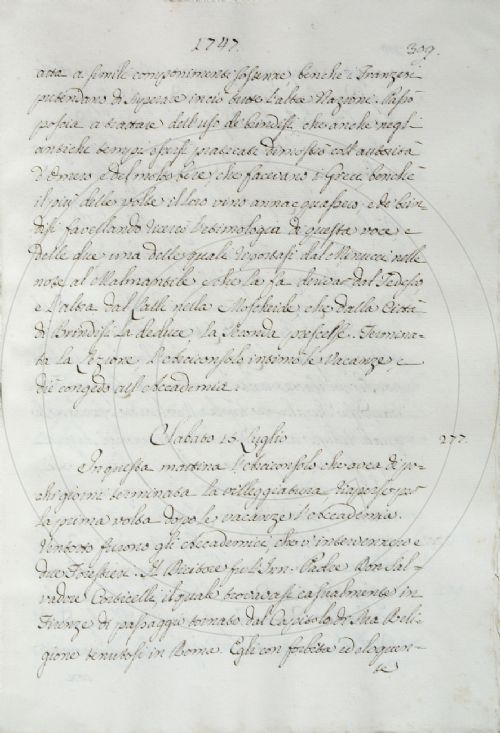 1747. 309.
atta a simili componimenti Toscana, benchè i Franzesi
pretendano di superare in ciò tutte l'altre Nazioni. Passò
poscia a trattare dell'uso de' brindisi, che anche negli
antichi tempi essersi praticati dimostrò coll'autorità
d'Omero, e dal modo bere, che facevano i Greci, benchè
il più delle volte il loro vino annacquassero. e de' brin-
disi favellando l'etimologia di questa voce e
delle due una delle quali riportasi dal Minucci nelle
note al Malmantile e che la fa derivar dal Tedesco
e l'altra dal Calli nella Moscheide, che dalla Città
di Brindisi la deduce, la seconda prescelse. Termina-
ta la Lezione, l'Arciconsolo intimò le Vacanze, e
diè congedo all'Accademia.
Sabato 15 Luglio 277.
In questa mattina l'Arciconsolo che avea di po-
chi giorni terminata la villeggiatura, riaperse per
la prima volta dopo le vacanze l'Accademia.
Ventotto furono gli Accademici, che v'intervennero e
due Forestieri. Il Recitore fu l'Inn. Padre Don Sal-
vadore Corticelli, il quale trovavasi casualmente in
Firenze di passaggio tornato dal Capitolo di sua Reli-
gione tenutosi in Roma. Egli con forbita ed eloquen-
te